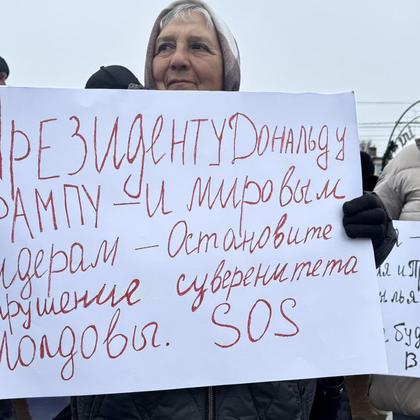 ПРЕЗИДЕНТУ ДОНАЛЬДУ
РАМПУ – и мировым
идерам – Остановите
рушение суверенитета
Молдовы. SOS
ия и Пр
ылья
буд
В